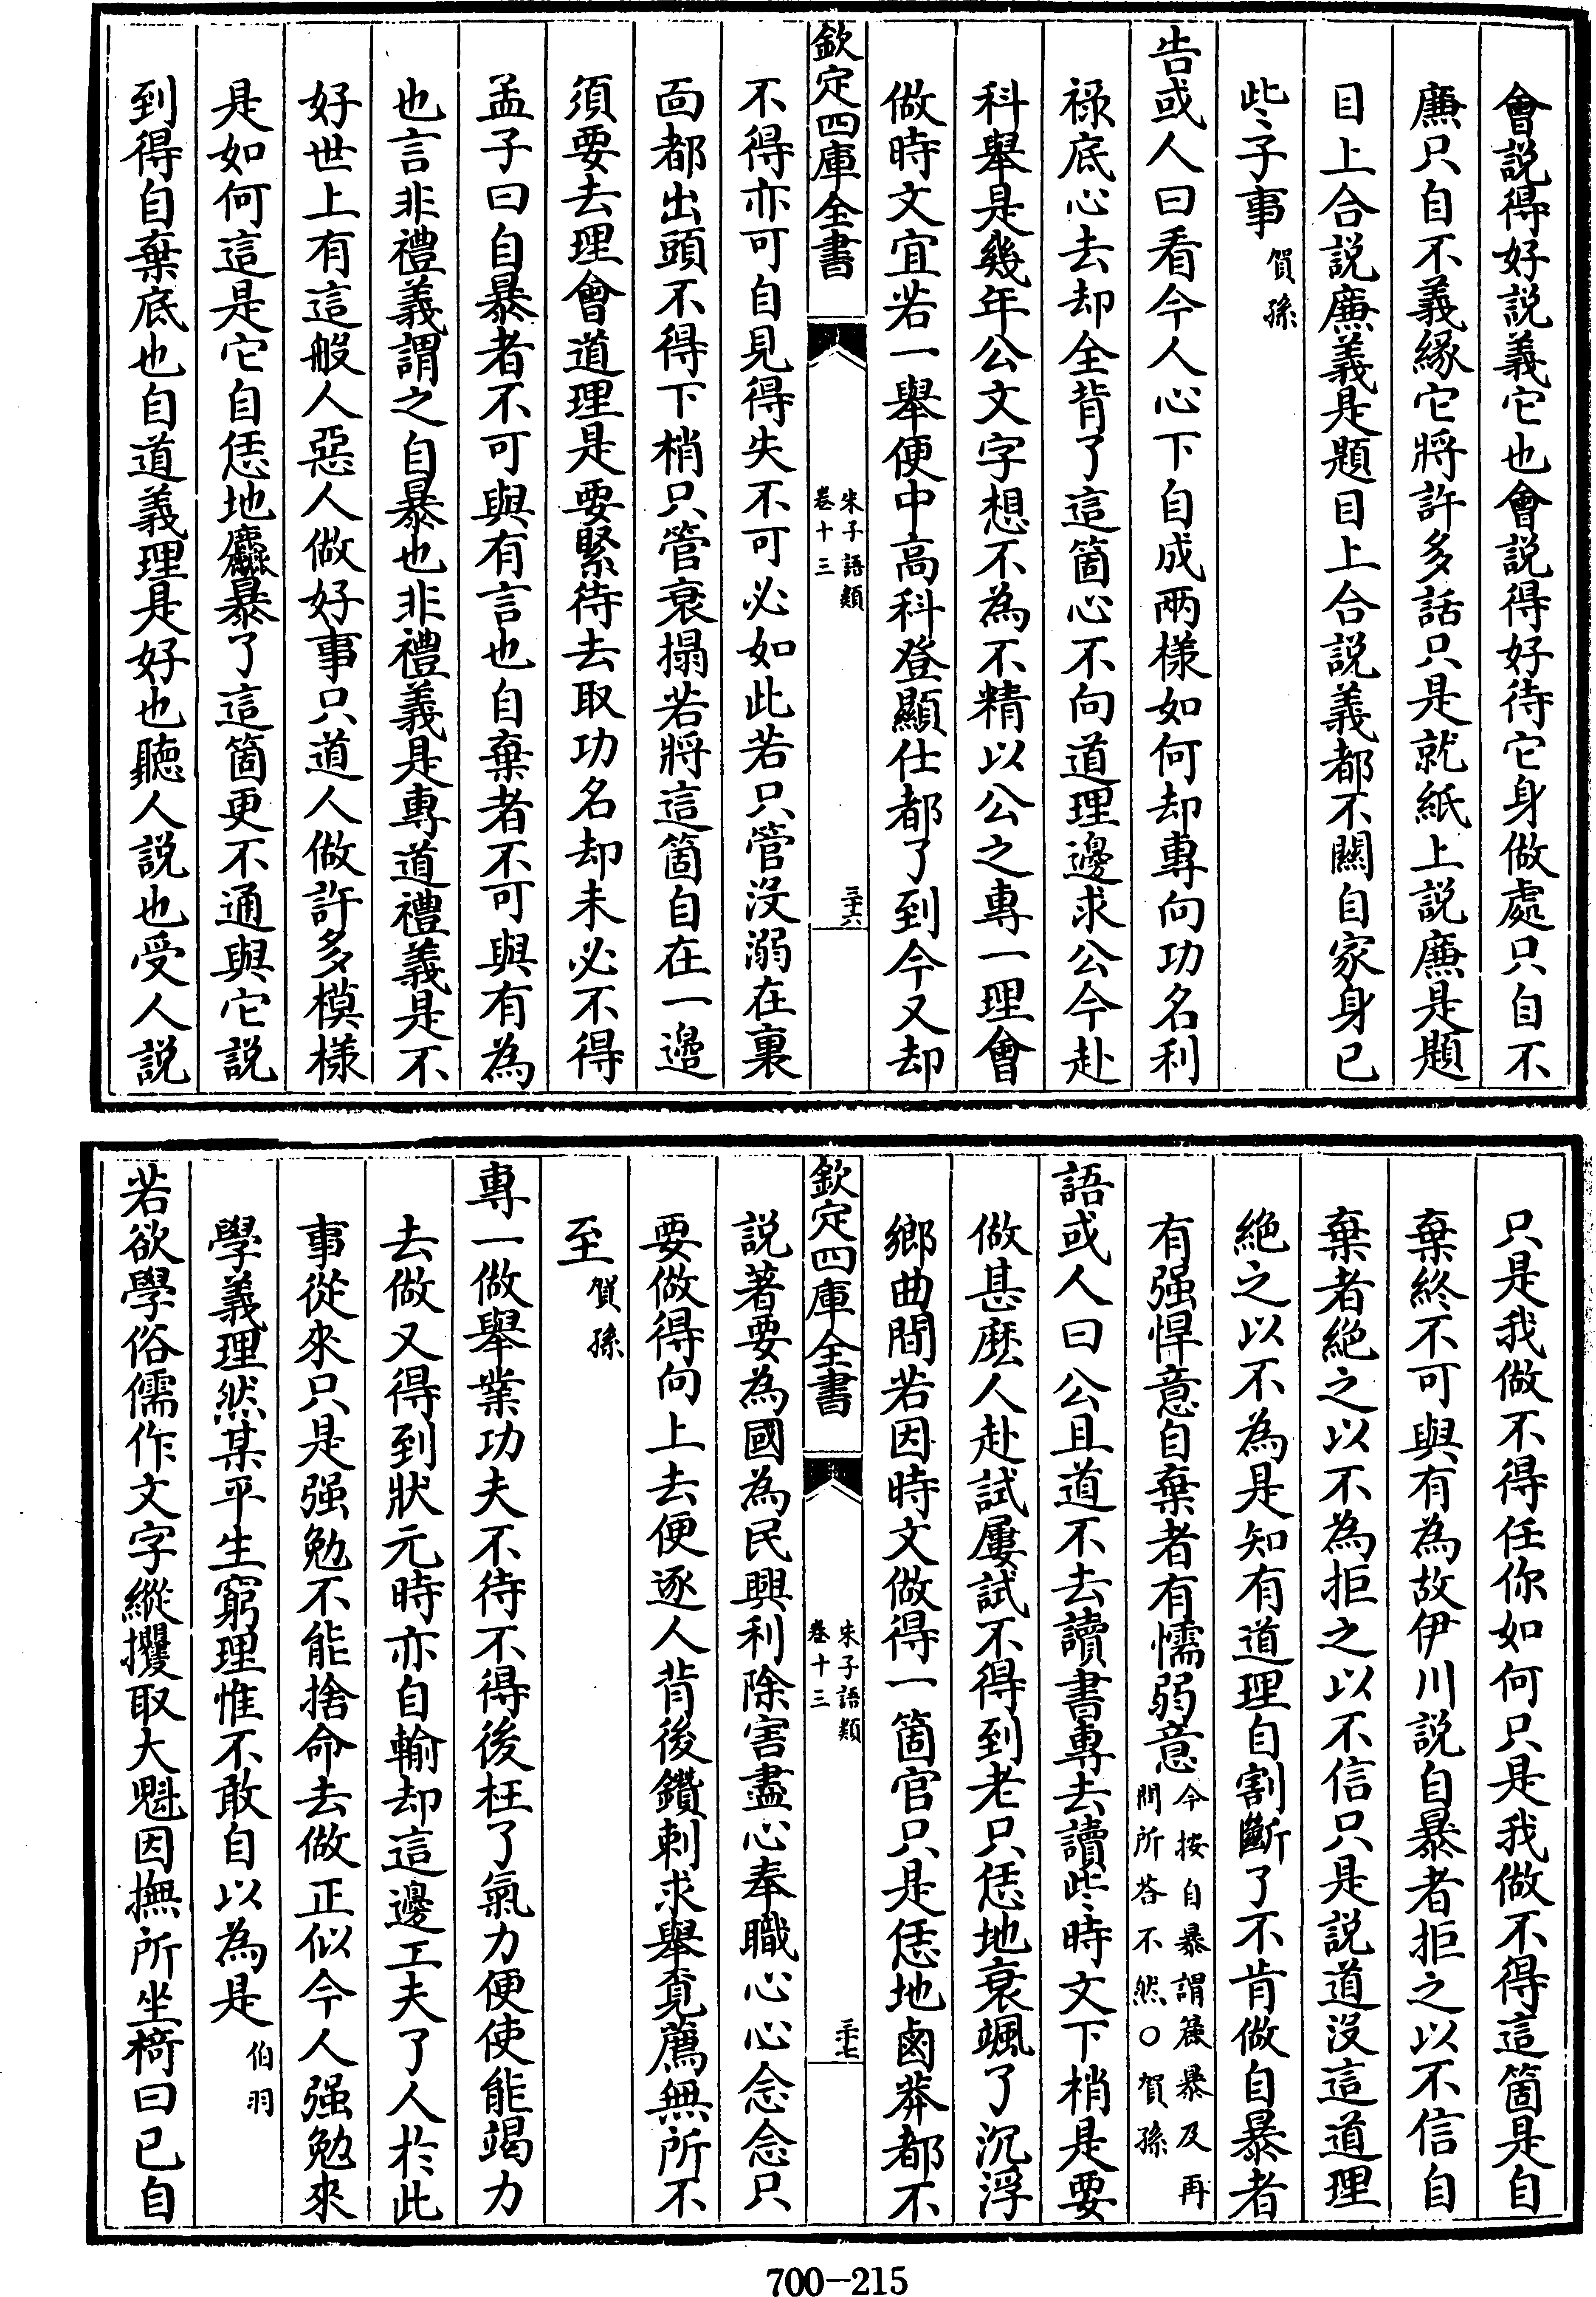 會説得好説義它也會説得好待它身做處只自不
廉只自不義緣它將許多話只是就紙上説廉是題
目上合説廉義是題目上合説義都不關自家身已
些子事賀孫
告或人曰看今人心下自成兩樣如何却專向功名利
禄底心去却全背了這箇心不向道理邊求公今赴
科舉是幾年公文字想不為不精以公之專一理會
做時文宜若一舉便中高科登顯仕都了到今又却
欽定四庫全書
朱子語類
卷十三
三十六
不得亦可自見得失不可必如此若只管沒溺在裏
面都出頭不得下梢只管衰搨若將這箇自在一邊
須要去理會道理是要緊待去取功名却未必不得
孟子曰自暴者不可與有言也自棄者不可與有為
也言非禮義謂之自暴也非禮義是專道禮義是不
好世上有這般人惡人做好事只道人做許多模様
是如何這是它自恁地麤暴了這箇更不通與它説
到得自棄底也自道義理是好也聽人説也受人説
只是我做不得任你如何只是我做不得這箇是自
棄終不可與有為故伊川説自暴者拒之以不信自
棄者絶之以不為拒之以不信只是説道沒這道理
絶之以不為是知有道理自割斷了不肯做自暴者
有强悍意自棄者有懦弱意今按自暴謂麤暴及再
問所荅不然○賀孫
語或人曰公且道不去讀書專去讀些時文下梢是要
做甚麽人赴試屢試不得到老只恁地衰颯了沉浮
鄉曲間若因時文做得一箇官只是恁地鹵莽都不
欽定四庫全書
朱子語類
卷十三
三十七
説著要為國為民興利除害盡心奉職心心念念只
要做得向上去便逐人背後鑽刺求舉覓薦無所不
至賀孫
專一做舉業功夫不待不得後枉了氣力便使能竭力
去做又得到狀元時亦自輸却這邊工夫了人於此
事從來只是强勉不能捨命去做正似今人强勉來
學義理然某平生窮理惟不敢自以為是伯羽
若欲學俗儒作文字縱攫取大魁因撫所坐椅曰已自
700-215